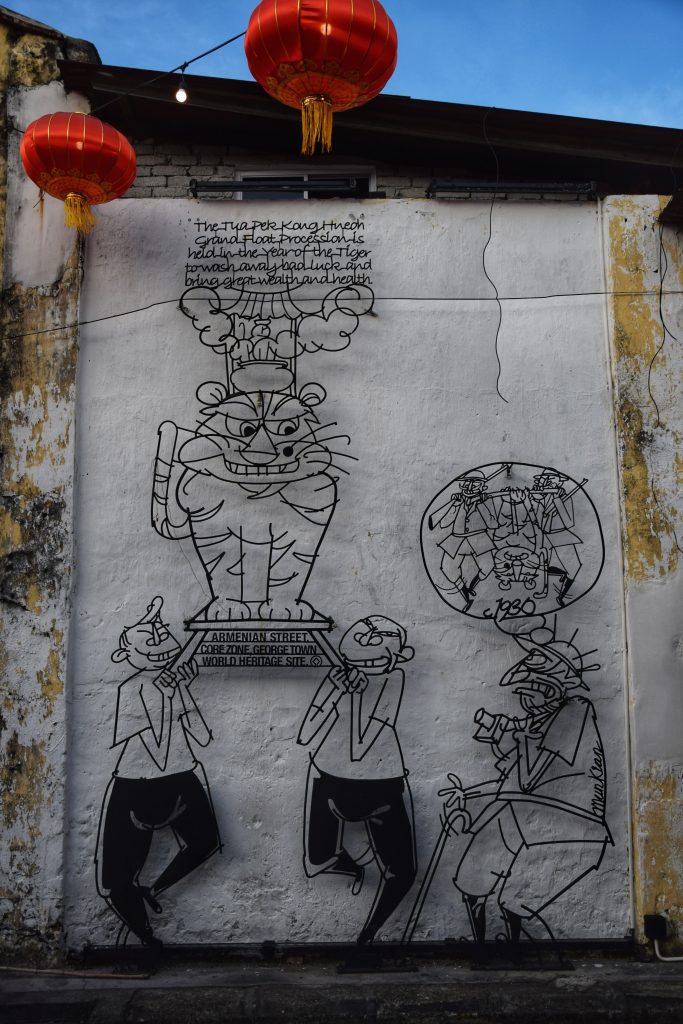 The Tua Pek Kong Hneoh
Grand Float Procession is
held in the Year of the Tiger
to wash away bad luck and
bring great wealth and health
c.1930
ARMENIAN STREET.
CORE ZONE, GEORGE TOWN
WORLD HERITAGE SITE.
Mun Kean